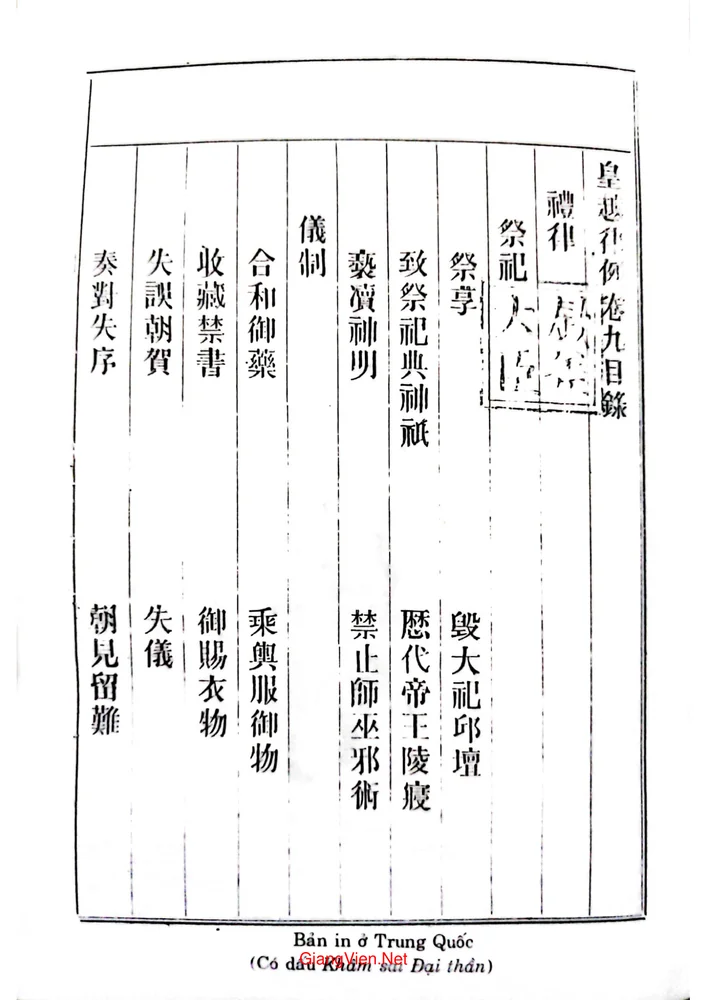 皇越律例卷九目錄
禮律
祭祀
祭享 毀大祀邱壇
致祭祀典神祇 歷代帝王陵寢
褻瀆神明 禁止師巫邪術
儀制
合和御藥 乘輿服御物
收藏禁書 御賜衣物
失誤朝賀 失儀
奏對失序 朝見留難
欽差
大臣
Bản in ở Trung Quốc
(Có dấu Khâm sai Đại thần)
GiangVien.Net